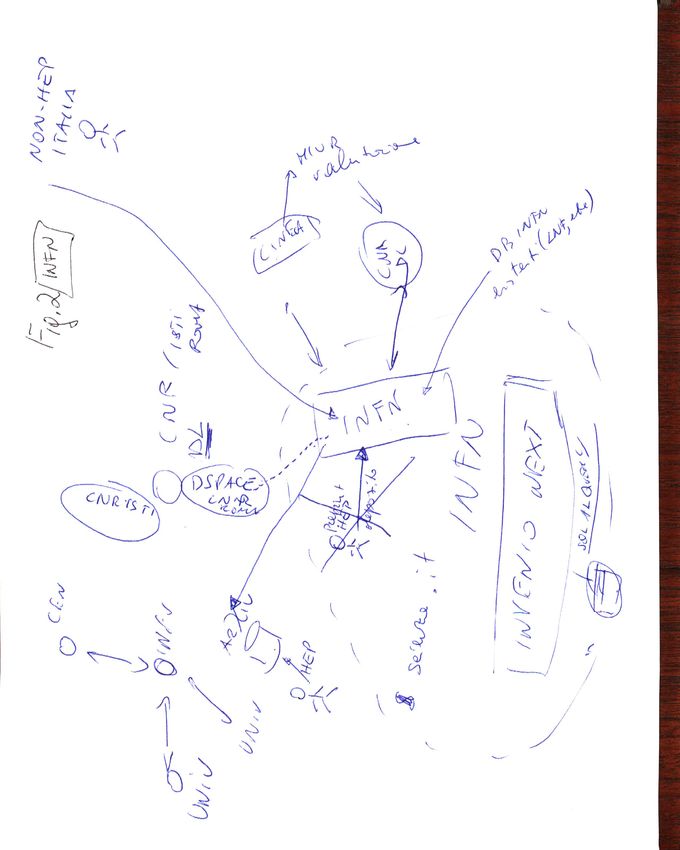 Fig. 2
INFN
NON-HEP
ITALIA
CINECA
MIUR
valutazione
CNR
DL
DB INFN
esistenti (LNF, etc)
CNR / ISTI
ROMA
DL
CNR ISTI
DSPACE
CNR
ROMA
INFN
Preprint
HEP
deposito
INFN
science.it
INVENIO NEXT
INFN
UNIV
UNIV
HEP